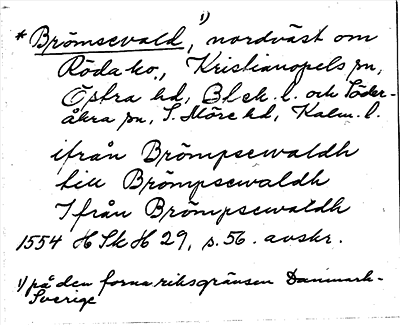 1)
* Brömsevald, nordväst om
Röda ko., Kristianopels sn,
Östra hd, Blek. l. och Söder-
åkra sn, S. Möre hd, Kalm. l.
ifrån Brömpsewaldh
till Brömpsewaldh
Ifrån Brömpsewaldh
1554 HSkH 29, s. 56. avskr.
1) på den forna riksgränsen Danmark-
Sverige